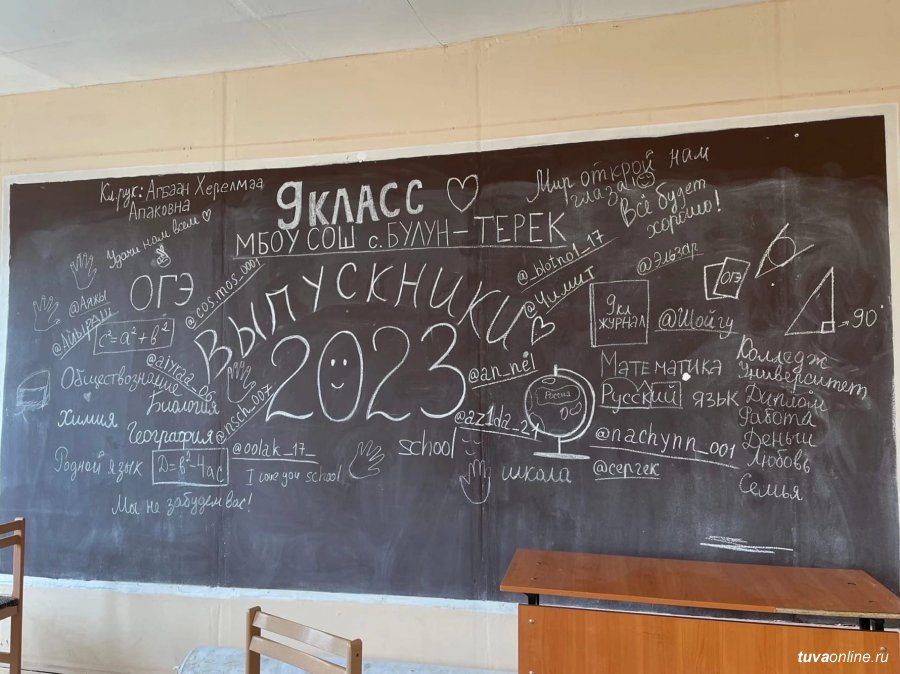 Кл.рук: Агбаан Херелмаа
Апаковна
Удачи нам всем
9 КЛАСС
МБОУ СОШ с. БУЛУН-ТЕРЕК
Мир открой нам
глаза!
Всё будет
хорошо!
ОГЭ
@cos.mos_0001
ВЫПУСКНИКИ
2023
@_blotno1_17
@Чимит
@Эльзар
ОГЭ
@Аяжы
@Айыраш
c²=a²+b²
@airaa_06
9кл
ЖУРНАЛ
@Шойгу
90°
Обществознание
Биология
@nsch_007
@an_nel
Россия
Математика
Русский язык
Химия
География
@oolak_17_
@az1da_21
@nachynn_001
Родной язык
D=b²-4ac
I love you school
school
школа
@сергек
Мы не забудем вас!
Колледж
Университет
Диплом
Работа
Деньги
Любовь
Семья
tuvaonline.ru